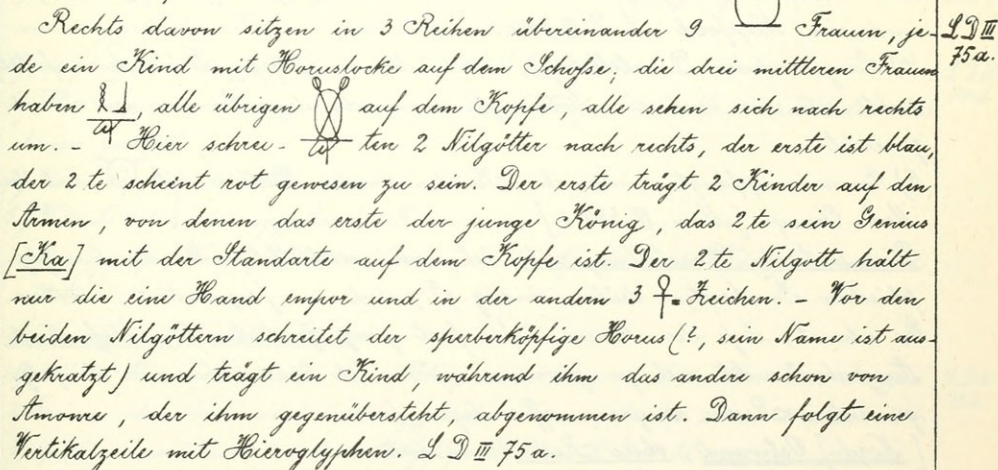 Rechts davon sitzen in 3 Reihen übereinander 9 Frauen, je- L D III
de ein Kind mit Horuslocke auf dem Schoße; die drei mittleren Frauen 75a.
haben , alle übrigen auf dem Kopfe, alle sehen sich nach rechts
um. - Hier schrei- ten 2 Nilgötter nach rechts, der erste ist blau,
der 2te scheint rot gewesen zu sein. Der erste trägt 2 Kinder auf den
Armen, von denen das erste der junge König, das 2te sein Genius
[Ka] mit der Standarte auf dem Kopfe ist. Der 2te Nilgott hält
nur die eine Hand empor und in der andern 3 Zeichen. - Vor den
beiden Nilgöttern schreitet der sperberköpfige Horus (?, sein Name ist aus-
gekratzt) und trägt ein Kind, während ihm das andere schon von
Amonre, der ihm gegenübersteht, abgenommen ist. Dann folgt eine
Vertikalzeile mit Hieroglyphen. L D III 75a.